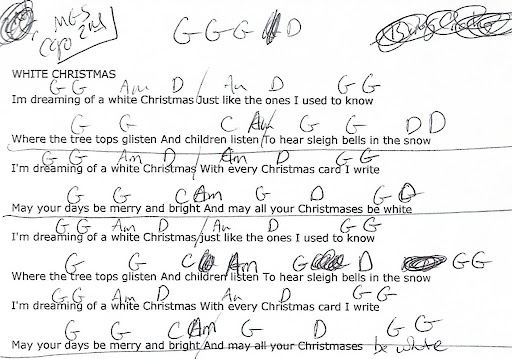 MGS
Capo 2nd
G G G D
WHITE CHRISTMAS
G G Am D / Am D G G
Im dreaming of a white Christmas Just like the ones I used to know
G G C Am G G D D
Where the tree tops glisten And children listen To hear sleigh bells in the snow
G G Am D / Am D G G
I'm dreaming of a white Christmas With every Christmas card I write
G G C Am G D G D
May your days be merry and bright And may all your Christmases be white
G G Am D / Am D G G
I'm dreaming of a white Christmas just like the ones I used to know
G G C Am G D G G
Where the tree tops glisten And children listen To hear sleigh bells in the snow
G G Am D Am D G G
I'm dreaming of a white Christmas With every Christmas card I write
G G C Am G D G G
May your days be merry and bright And may all your Christmases be white